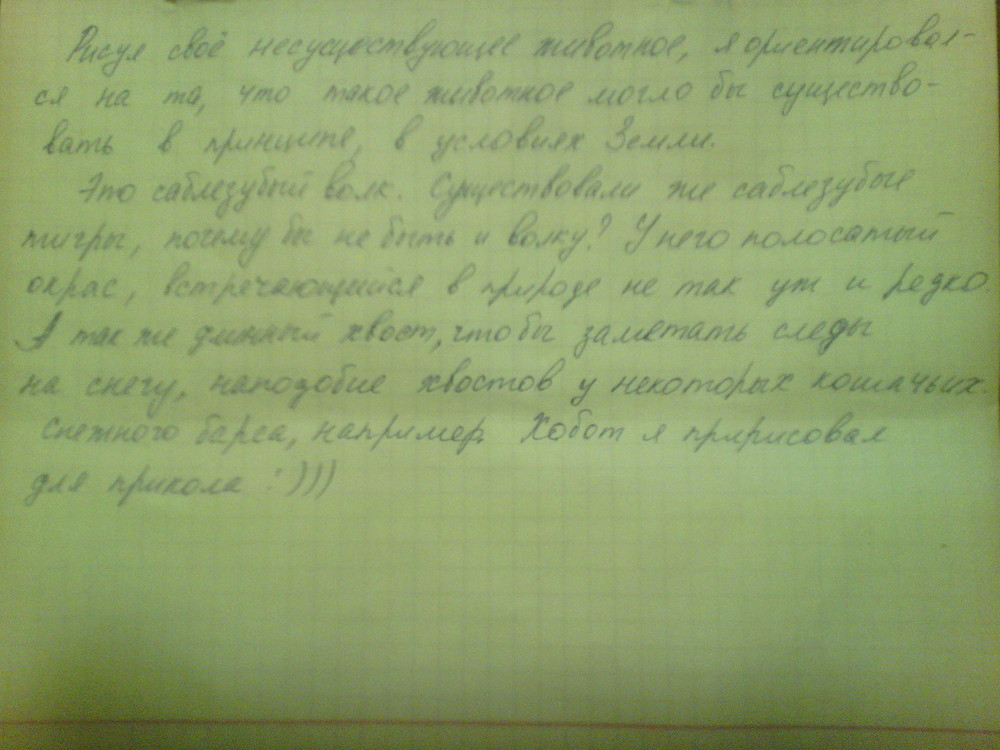 Рисуя своё несуществующее животное, я ориентировал-
ся на та, что такое животное могло бы существо-
вать в принципе, в условиях Земли.
Это саблезубый волк. Существовали же саблезубые
тигры, почему бы не быть и волку? У него полосатый
окрас, встречающийся в природе не так уж и редко.
А так же длинный хвост, что бы заметать следы
на снегу, наподобие хвостов у некоторых кошачьих.
Снежного барса, например. Хобот я пририсовал
для прикола :)))